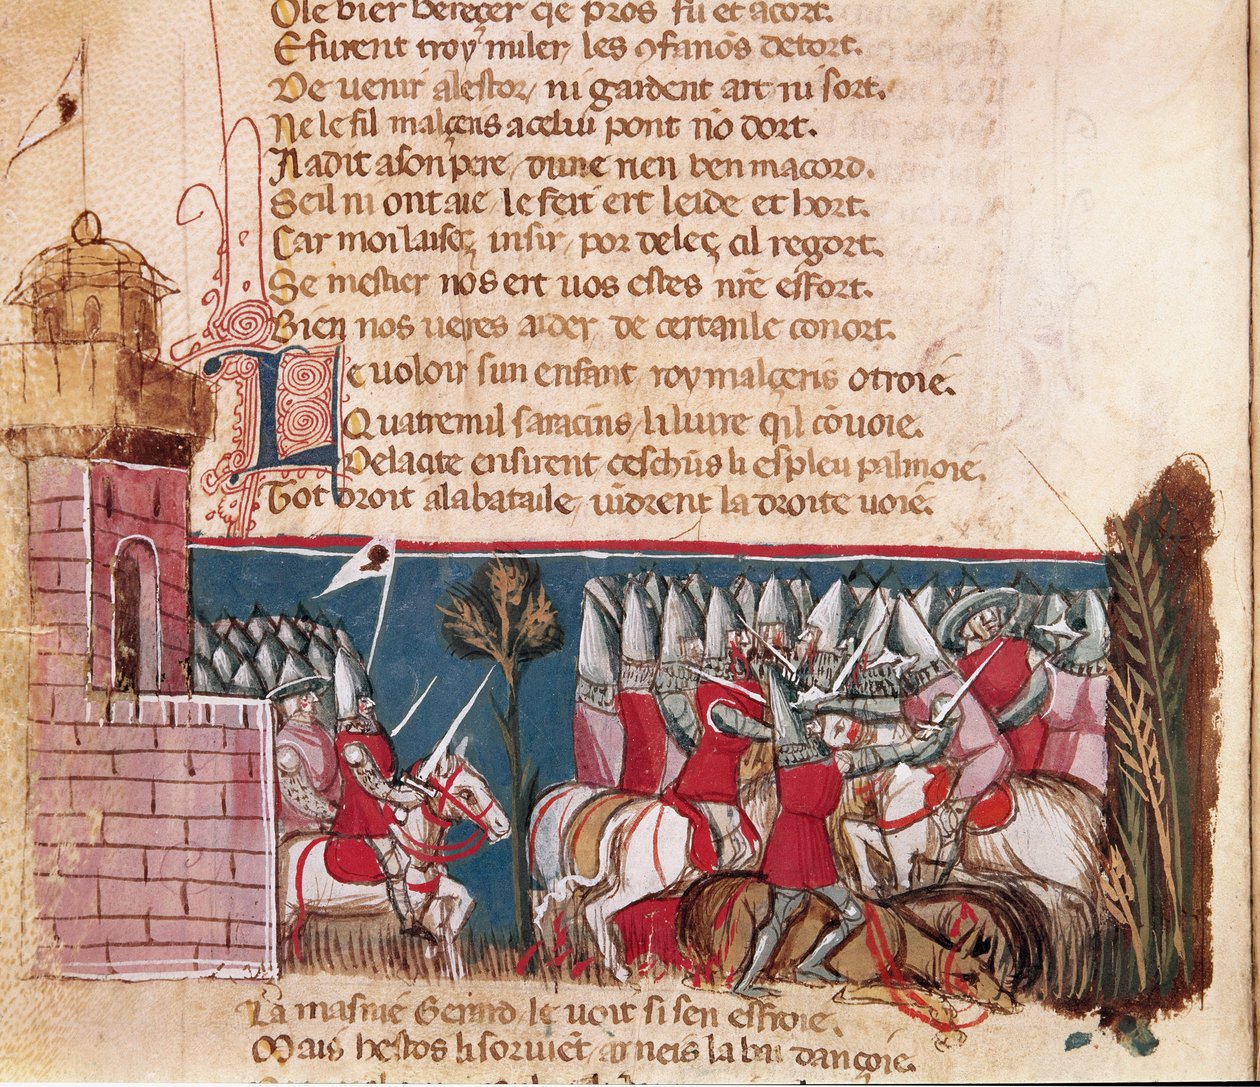 Ole bier bereçer qe pros fu et acort.
E furent troy miler, les ꝯfanōs detort.
De uenir alestor, ni gardent art ni sort.
Ne le fil malçeris acelui pont nō dort.
A adit ason pere, dune rien ben macord.
Se il ni ont aie, le feit ert leide et hort.
Car moi laiseç insir, por deleç cil regort.
Se mestier nos ert uos estes nr̄e esfort.
Bien nos ueres aider, de certan le conort.
Le uoloir sun enfant, roy malçeris otroie.
Quatre mil saracins, li liure qil cōuoie.
De la cite ensirent ceschūs li espleu palmoie.
Tot droit ala bataile, uīdrent la droite uoie.
La masnie Gerard, le uoit si sen esfroie.
Mais hestos li soruiēt, la dançoie.